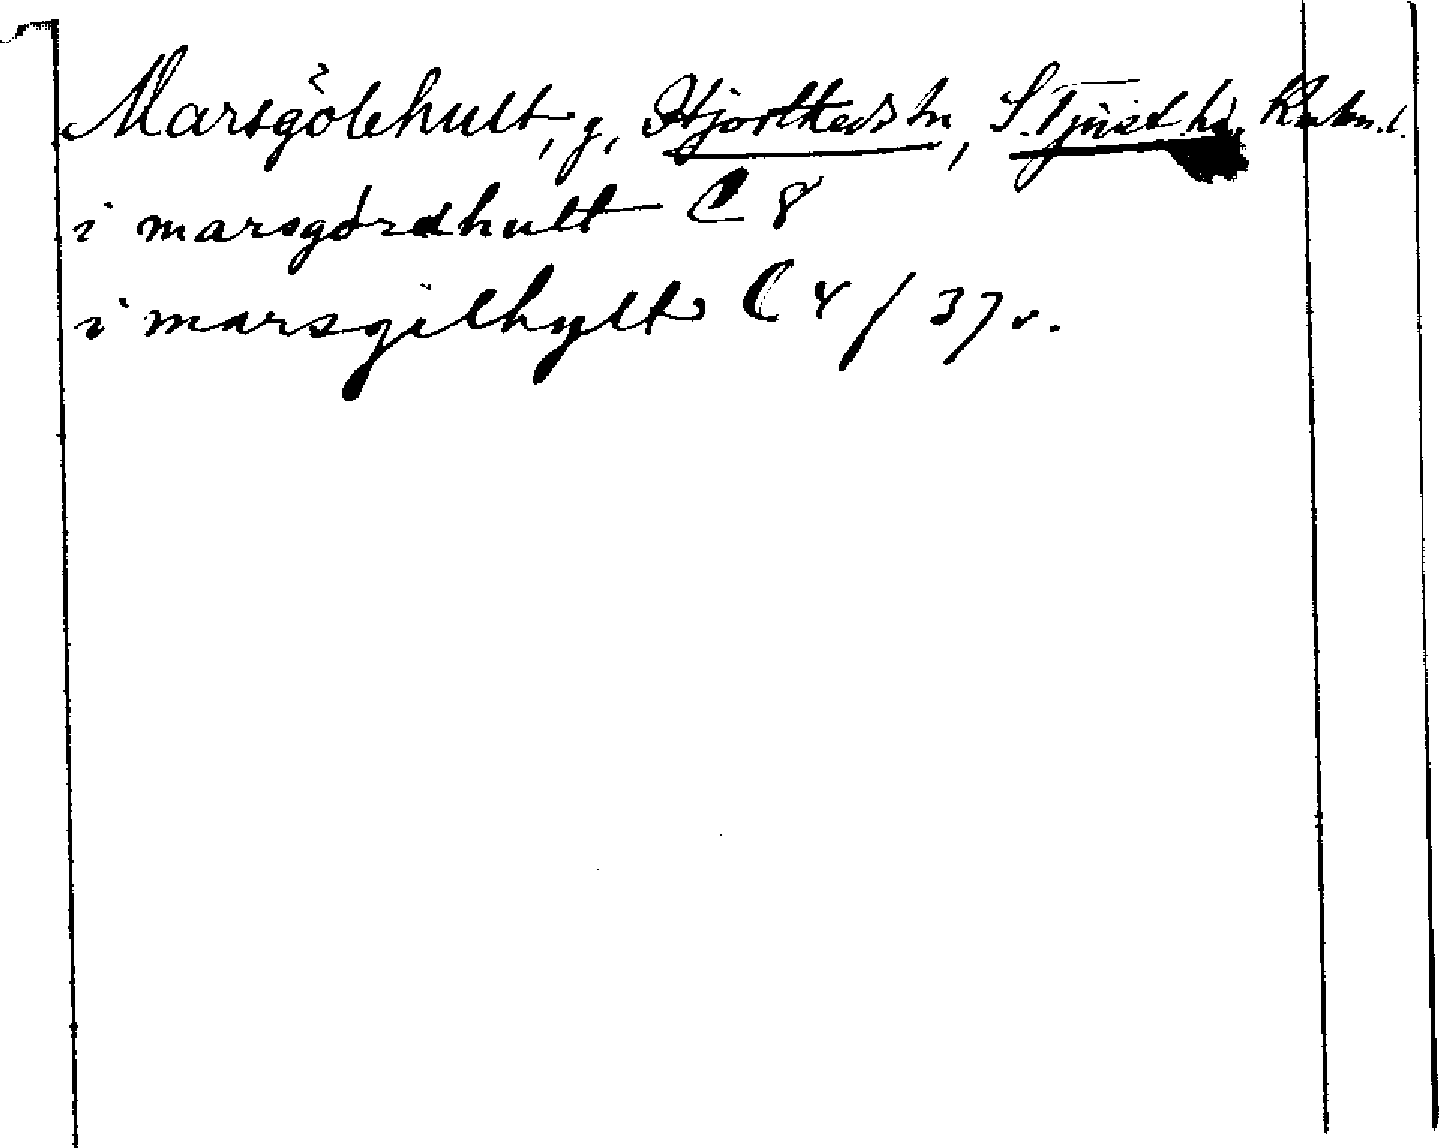 Marsgölehult, g, Hjorteds sn, S. Tjust hd, Kalm. l.
i marsgördhult C 8
i marsgilhylt C 4 / 37 v.